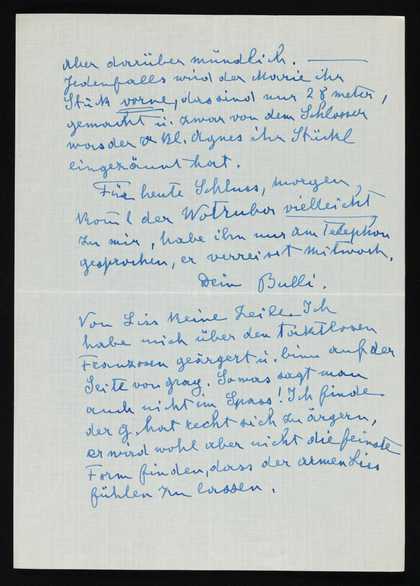 Aber darüber mündlich. —
Jedenfalls wird der Marie ihr
Stück vorne, das sind nur 28 meter,
gemacht u. zwar von dem Schlosser
was der Kl. Agnes ihr Stückl
eingezäunt hat.
Für heute Schluss, morgen,
kommt der Wotruba vielleicht
zu mir, habe ihn nur am Telephon
gesprochen, er verreist Mittwoch.
Dein Bulli.
Von Liss keine Zeile. Ich
habe mich über den taktlosen
Franzosen geärgert u. binn auf der
Seite von Sowas sagt man
auch nicht im Spass! Ich finde
der G. hat recht sich zu ärgern,
er wird wohl aber nicht die feinste
Form finden, dass der armen Liss
fühlen zu lassen.